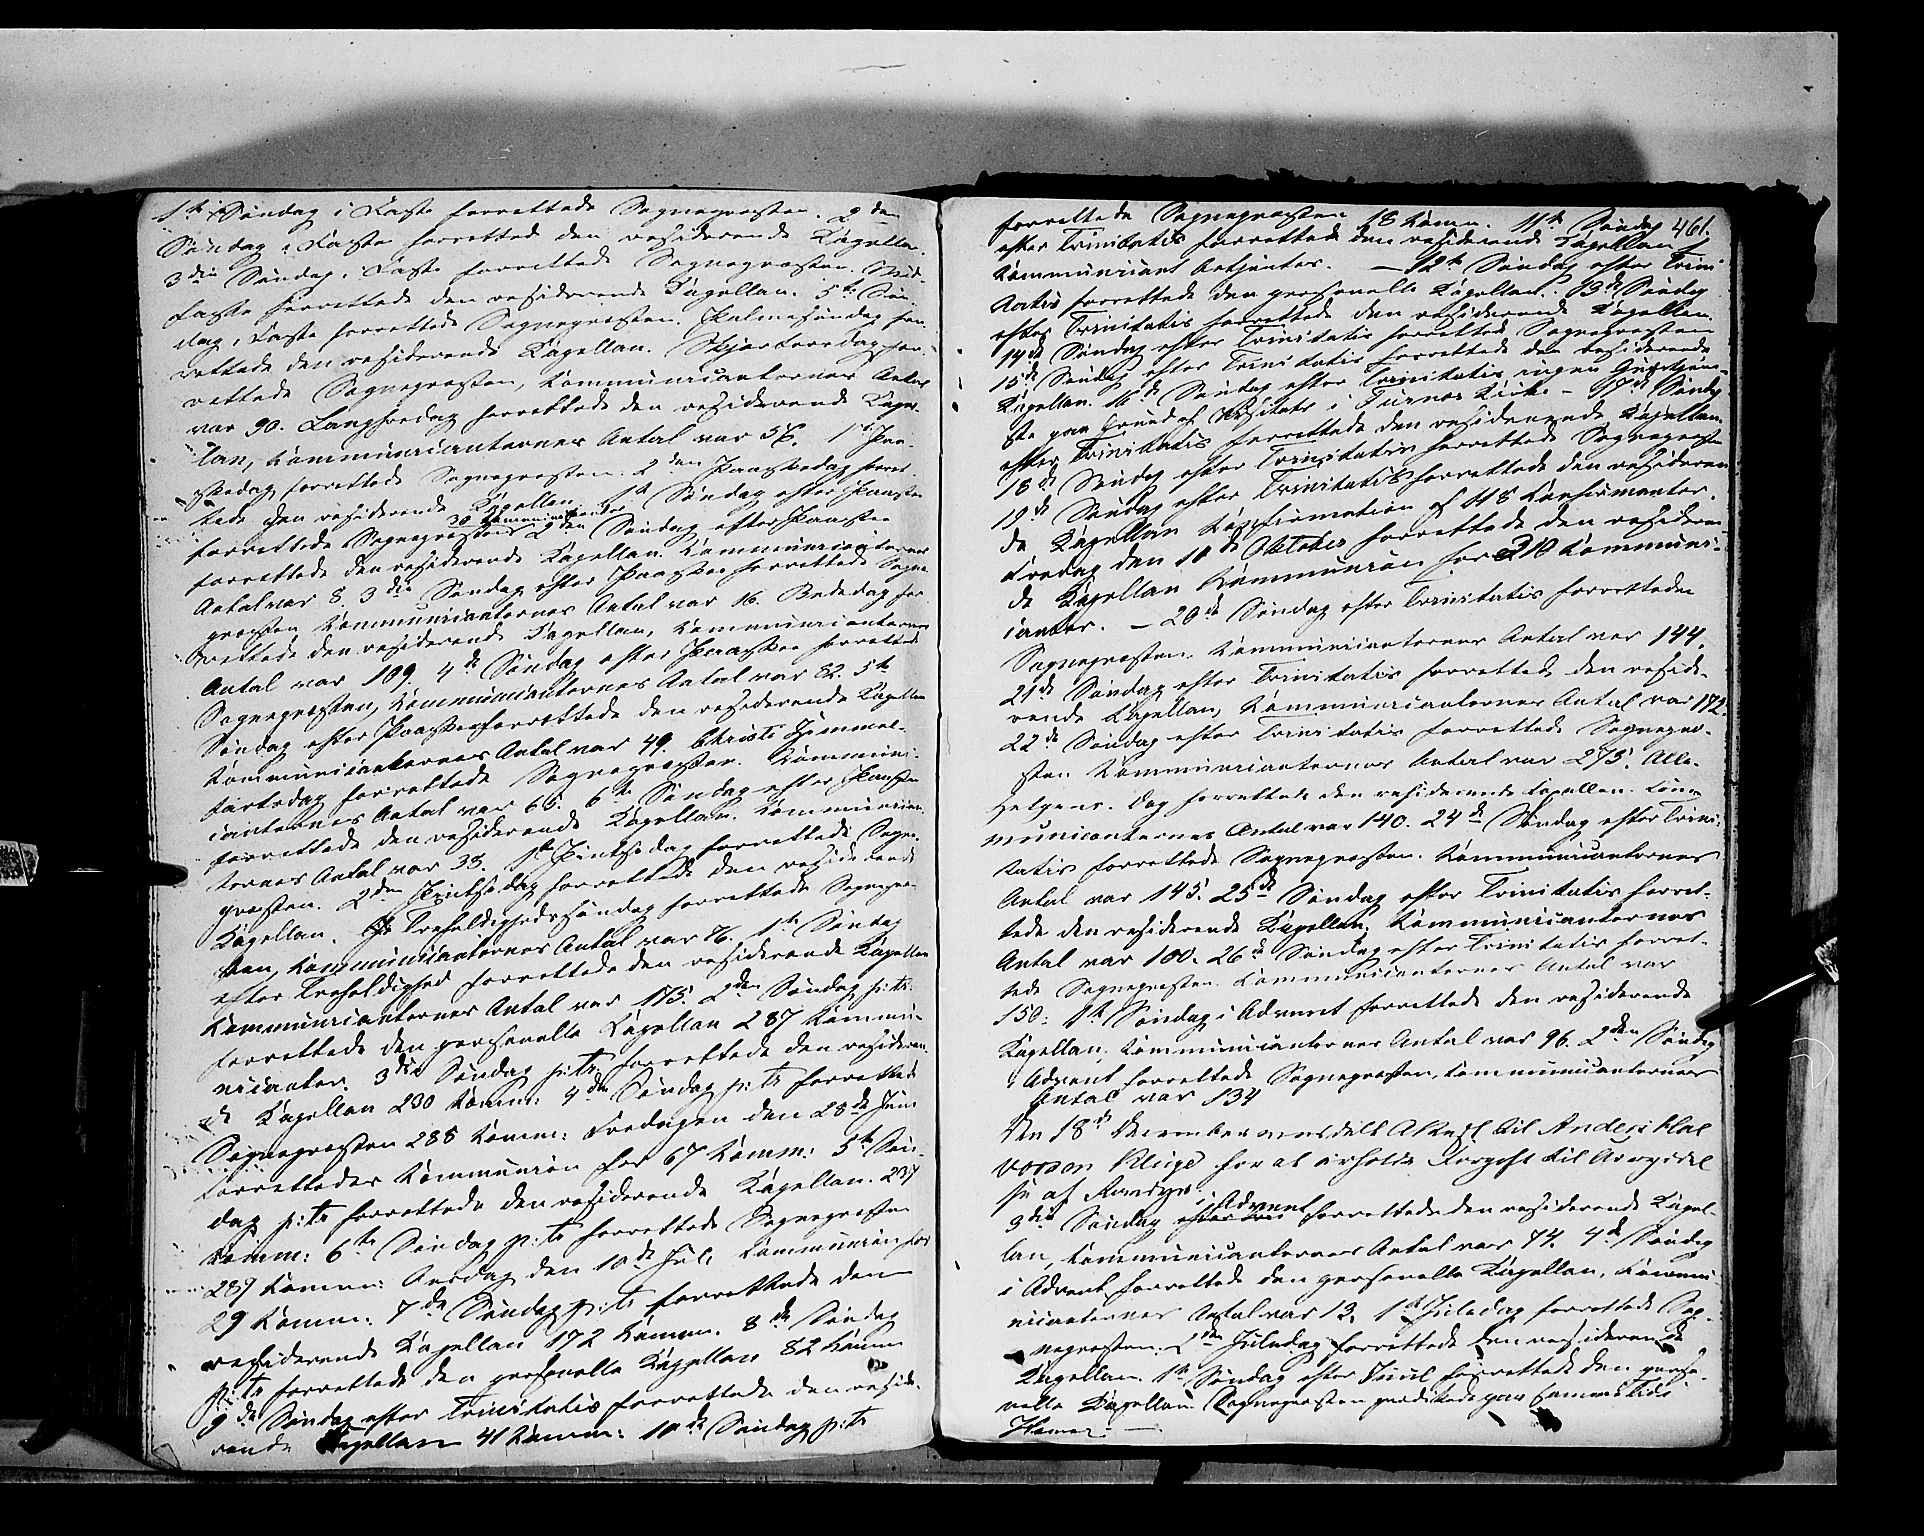 1ste Søndag i Faste forrettede Sognepræsten. 2den
Søndag i Faste forrettede den residerende Kapellan.
3die Søndag i Faste forrettede Sognepræsten. Mid-
faste forrettede den residerende Kapellan. 5te Søn-
dag i Faste forrettede Sognepræsten. Palmesøndag for-
rettede den residerende Kapellan. Skjærtorsdag for-
rettede Sognepræsten, Kommunicanternes Antal
var 90. Langfredag forrettede den residerende Kapel-
lan, Kommunicanternes Antal var 56. 1ste Paa-
skedag forrettede Sognepræsten. 2den Paaskedag forret-
tede den residerende Kapellan. 1ste Søndag efter Paaske
forrettede Sognepræsten 30 Kommunicanter 2den Søndag efter Paaske
forrettede den residerende Kapellan. Kommunicanternes
Antal var 8. 3die Søndag efter Paaske forrettede Sogne-
præsten Kommunicanternes Antal var 16. Bededag for-
rettede den residerende Kapellan, Kommunicanternes
Antal var 109. 4de Søndag efter Paaske forrettede
Sognepræsten, Kommunicanternes Antal var 82. 5te
Søndag efter Paaske forrettede den residerende Kapellan
Kommunicanternes Antal var 49. Christi Himmel-
fartsdag forrettede Sognepræsten. Kommuni-
canternes Antal var 65. 6te Søndag efter Paaske
forrettede den residerende Kapellan. Kommunican-
ternes Antal var 33. 1ste Pintsedag forrettede Sogne-
præsten. 2den Pintsedag forrettede den residerende
Kapellan. Trefoldighedssøndag forrettede Sognepræ-
sten, Kommunicanternes Antal var 76. 1ste Søndag
efter Trefoldighed forrettede den residerende Kapellan
Kommunicanternes Antal var 175. 2den Søndag p: tr:
forrettede den personelle Kapellan 287 Kommu-
nicanter. 3die Søndag p: tr: forrettede den resideren-
de Kapellan 230 Komm: 4de Søndag p: tr: forrettede
Sognepræsten 288 Komm: Fredagen den 28de Juni
forrettedes Kommunion for 67 Komm: 5te Søn-
dag p: tr: forrettede den residerende Kapellan. 237
Komm: 6te Søndag p: tr: forrettede Sognepræsten
287 Komm: Onsdag den 10de Juli Kommunion for
29 Komm: 7de Søndag p: tr: forrettede den
residerende Kapellan 172 Komm. 8de Søndag
p: tr: forrettede den personelle Kapellan 82 Komm
9de Søndag efter Trinitatis forrettede den reside-
rende Kapellan 41 Komm: 10de Søndag p: tr:
461.
forrettede Sognepræsten 18 Komm. 11te Søndag
efter Trinitatis forrettede den residerende Kapellan 1
Kommunicant betjentes. — 12te Søndag efter Trini-
tatis forrettede den personelle Kapellan. 13de Søndag
efter Trinitatis forrettede den residerende Kapellan.
14de Søndag efter Trinitatis forrettede Sognepræsten
15de Søndag efter Trinitatis forrettede den residerende
Kapellan. 16de Søndag efter Trinitatis ingen Gudstjene-
ste paa Grund af Visitats i Furnes Kirke — 17de Søndag
efter Trinitatis forrettede den residerende Kapellan.
18de Søndag efter Trinitatis forrettede Sognepræsten
19de Søndag efter Trinitatis forrettede den resideren-
de Kapellan Konfirmation af 118 Konfirmanter.
den 10de Oktober forrettede den resideren-
de Kapellan Kommunion for 210 Kommuni-
canter. — 20de Søndag efter Trinitatis forrettede
Sognepræsten. Kommunicanternes Antal var 144.
21de Søndag efter Trinitatis forrettede den reside-
rende Kapellan, Kommunicanternes Antal var 172.
22de Søndag efter Trinitatis forrettede Sognepræ-
sten Kommunicanternes Antal var 275. Alle-
helgens-Dag forrettede den residerende Kapellan. Kom-
municanternes Antal var 140. 24de Søndag efter Trini-
tatis forrettede Sognepræsten. Kommunicanternes
Antal var 145. 25de Søndag efter Trinitatis forret-
tede den residerende Kapellan, Kommunicanternes
Antal var 100. 26de Søndag efter Trinitatis forret-
tede Sognepræsten. Kommunicanternes Antal var
150. 1ste Søndag i Advent forrettede den residerende
Kapellan, Kommunicanternes Antal var 96. 2den Søndag
i Advent forrettede Sognepræsten, Kommunicanternes
Antal var 134
Den 18de December meddelt Attest til Anders
for at erholde
se af
3die Søndag i Advent forrettede den residerende Kapel-
lan, Kommunicanternes Antal var 74. 4de Søndag
i Advent forrettede den personelle Kapellan, Kommu-
nicanternes Antal var 13. 1ste Juledag forrettede Sog-
nepræsten. 2den Juledag forrettede den residerende
Kapellan. 1ste Søndag efter Juul forrettede den perso-
nelle Kapellan. Sognepræsten prædikede paa samme Tid i
Hamar. —